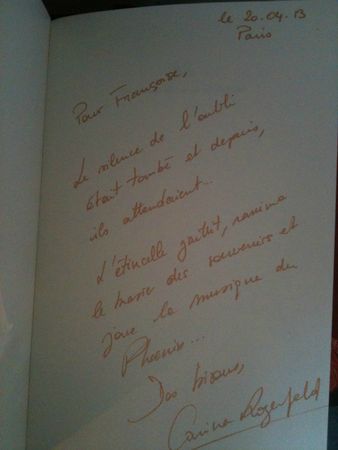 le 20.04.13
Paris
Pour Françoise,
Le silence de l'oubli
était tombé et depuis,
ils attendaient...
L'étincelle jaillit, ranima
le brasier des souvenirs et
joue la musique du
Phoenix...
Des bisous,
Carina Rozenfeld